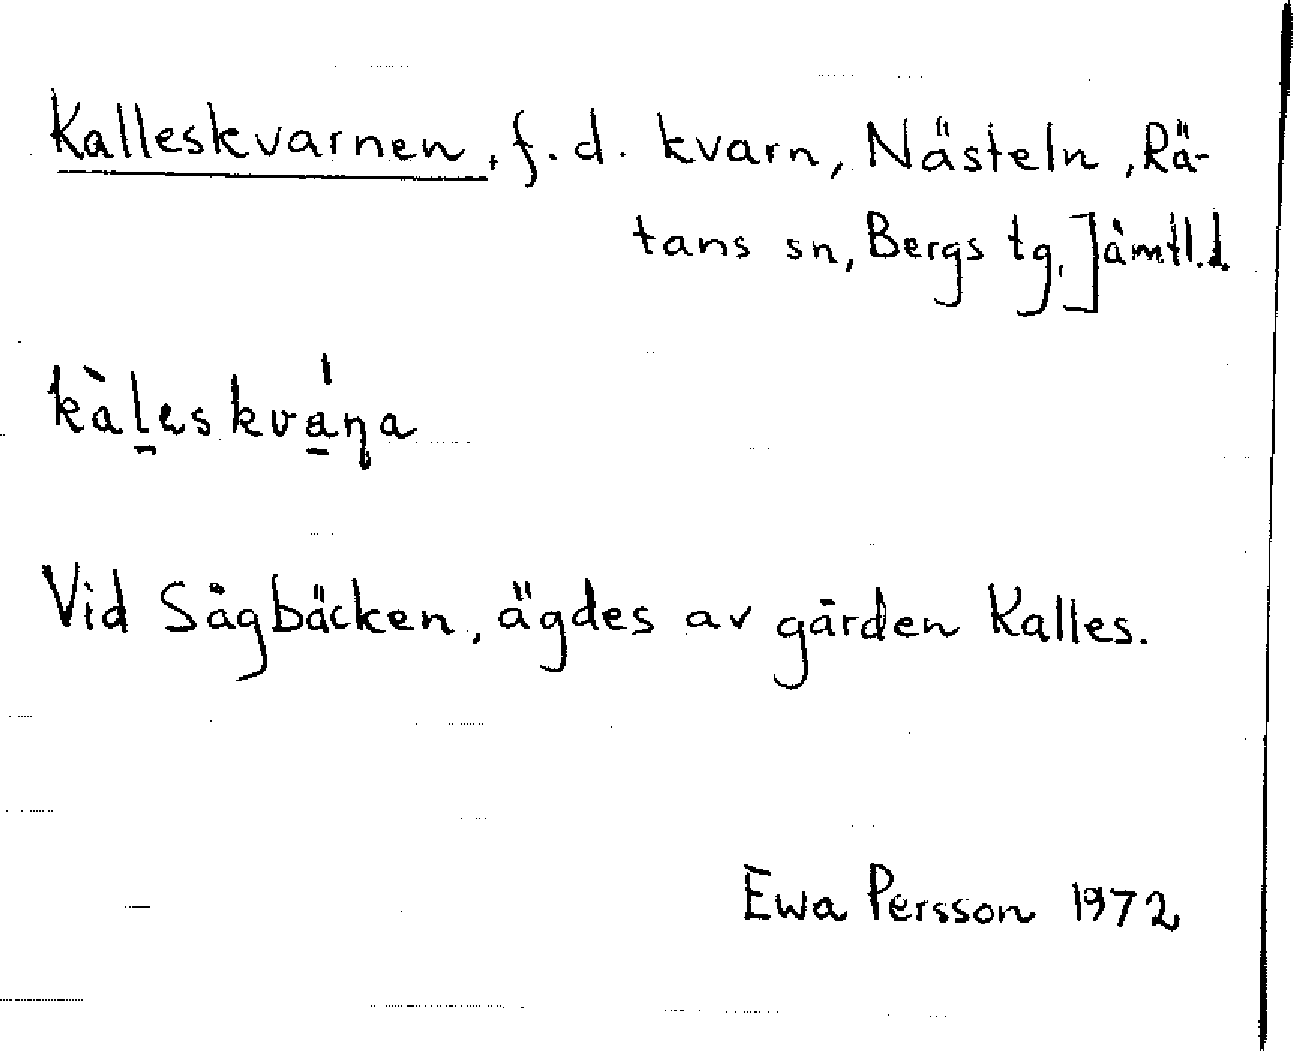 Kalleskvarnen, f.d. kvarn, Nästeln, Rä-
tans sn, Bergs tg, Jämtl.l.
kàl̠eskvá̠ɳa
Vid Sågbäcken, ägdes av gården Kalles.
Ewa Persson 1972